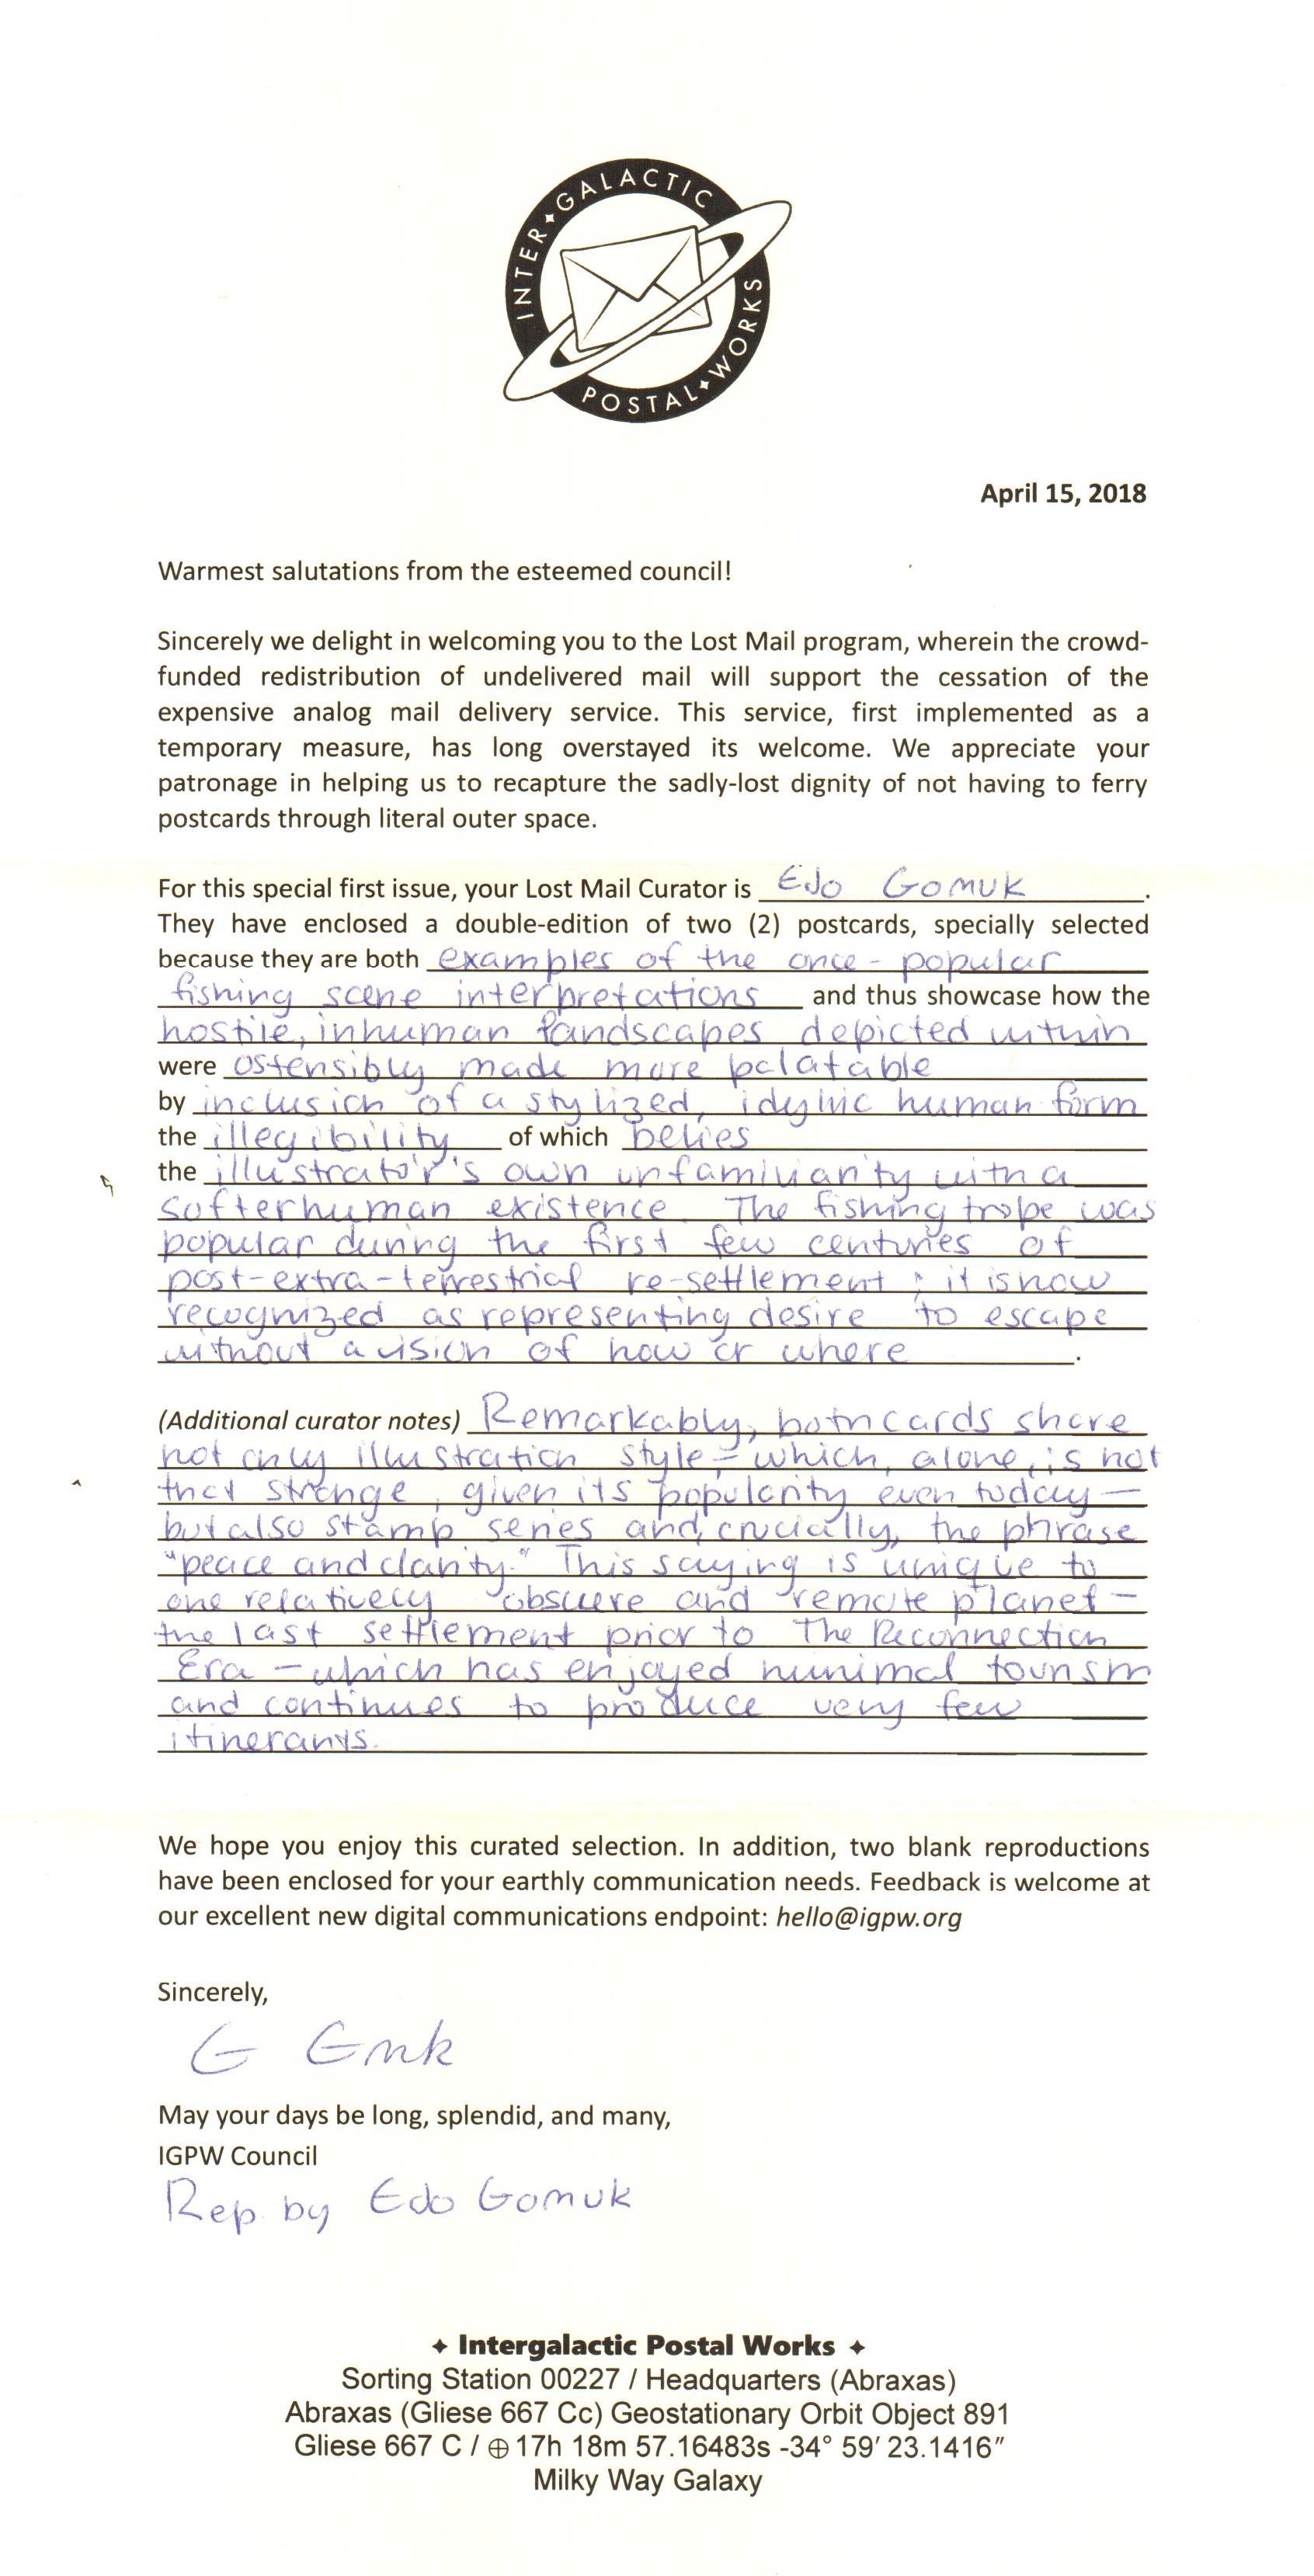 INTER✦GALACTIC
POSTAL✦WORKS
April 15, 2018
Warmest salutations from the esteemed council!
Sincerely we delight in welcoming you to the Lost Mail program, wherein the crowd-
funded redistribution of undelivered mail will support the cessation of the
expensive analog mail delivery service. This service, first implemented as a
temporary measure, has long overstayed its welcome. We appreciate your
patronage in helping us to recapture the sadly-lost dignity of not having to ferry
postcards through literal outer space.
For this special first issue, your Lost Mail Curator is Edo Gomuk.
They have enclosed a double-edition of two (2) postcards, specially selected
because they are both examples of the once-popular
fishing scene interpretations and thus showcase how the
hostile, inhuman landscapes depicted within
were ostensibly made more palatable
by inclusion of a stylized, idyllic human form
the illegibility of which belies
the illustrator's own unfamiliarity with a
softer human existence. The fishing trope was
popular during the first few centuries of
post-extra-terrestrial re-settlement; it is now
recognized as representing desire to escape
without a vision of how or where.
(Additional curator notes) Remarkably, both cards share
not only illustration style - which, alone, is not
that strange, given its popularity even today —
but also stamp series and, crucially, the phrase
"peace and clarity." This saying is unique to
one relatively obscure and remote planet —
the last settlement prior to The Reconnection
Era — which has enjoyed minimal tourism
and continues to produce very few
itinerants.
We hope you enjoy this curated selection. In addition, two blank reproductions
have been enclosed for your earthly communication needs. Feedback is welcome at
our excellent new digital communications endpoint: hello@igpw.org
Sincerely,
G Gmk
May your days be long, splendid, and many,
IGPW Council
Rep by Edo Gomuk
✦ Intergalactic Postal Works ✦
Sorting Station 00227 / Headquarters (Abraxas)
Abraxas (Gliese 667 Cc) Geostationary Orbit Object 891
Gliese 667 C / ⊕ 17h 18m 57.16483s -34° 59′ 23.1416″
Milky Way Galaxy